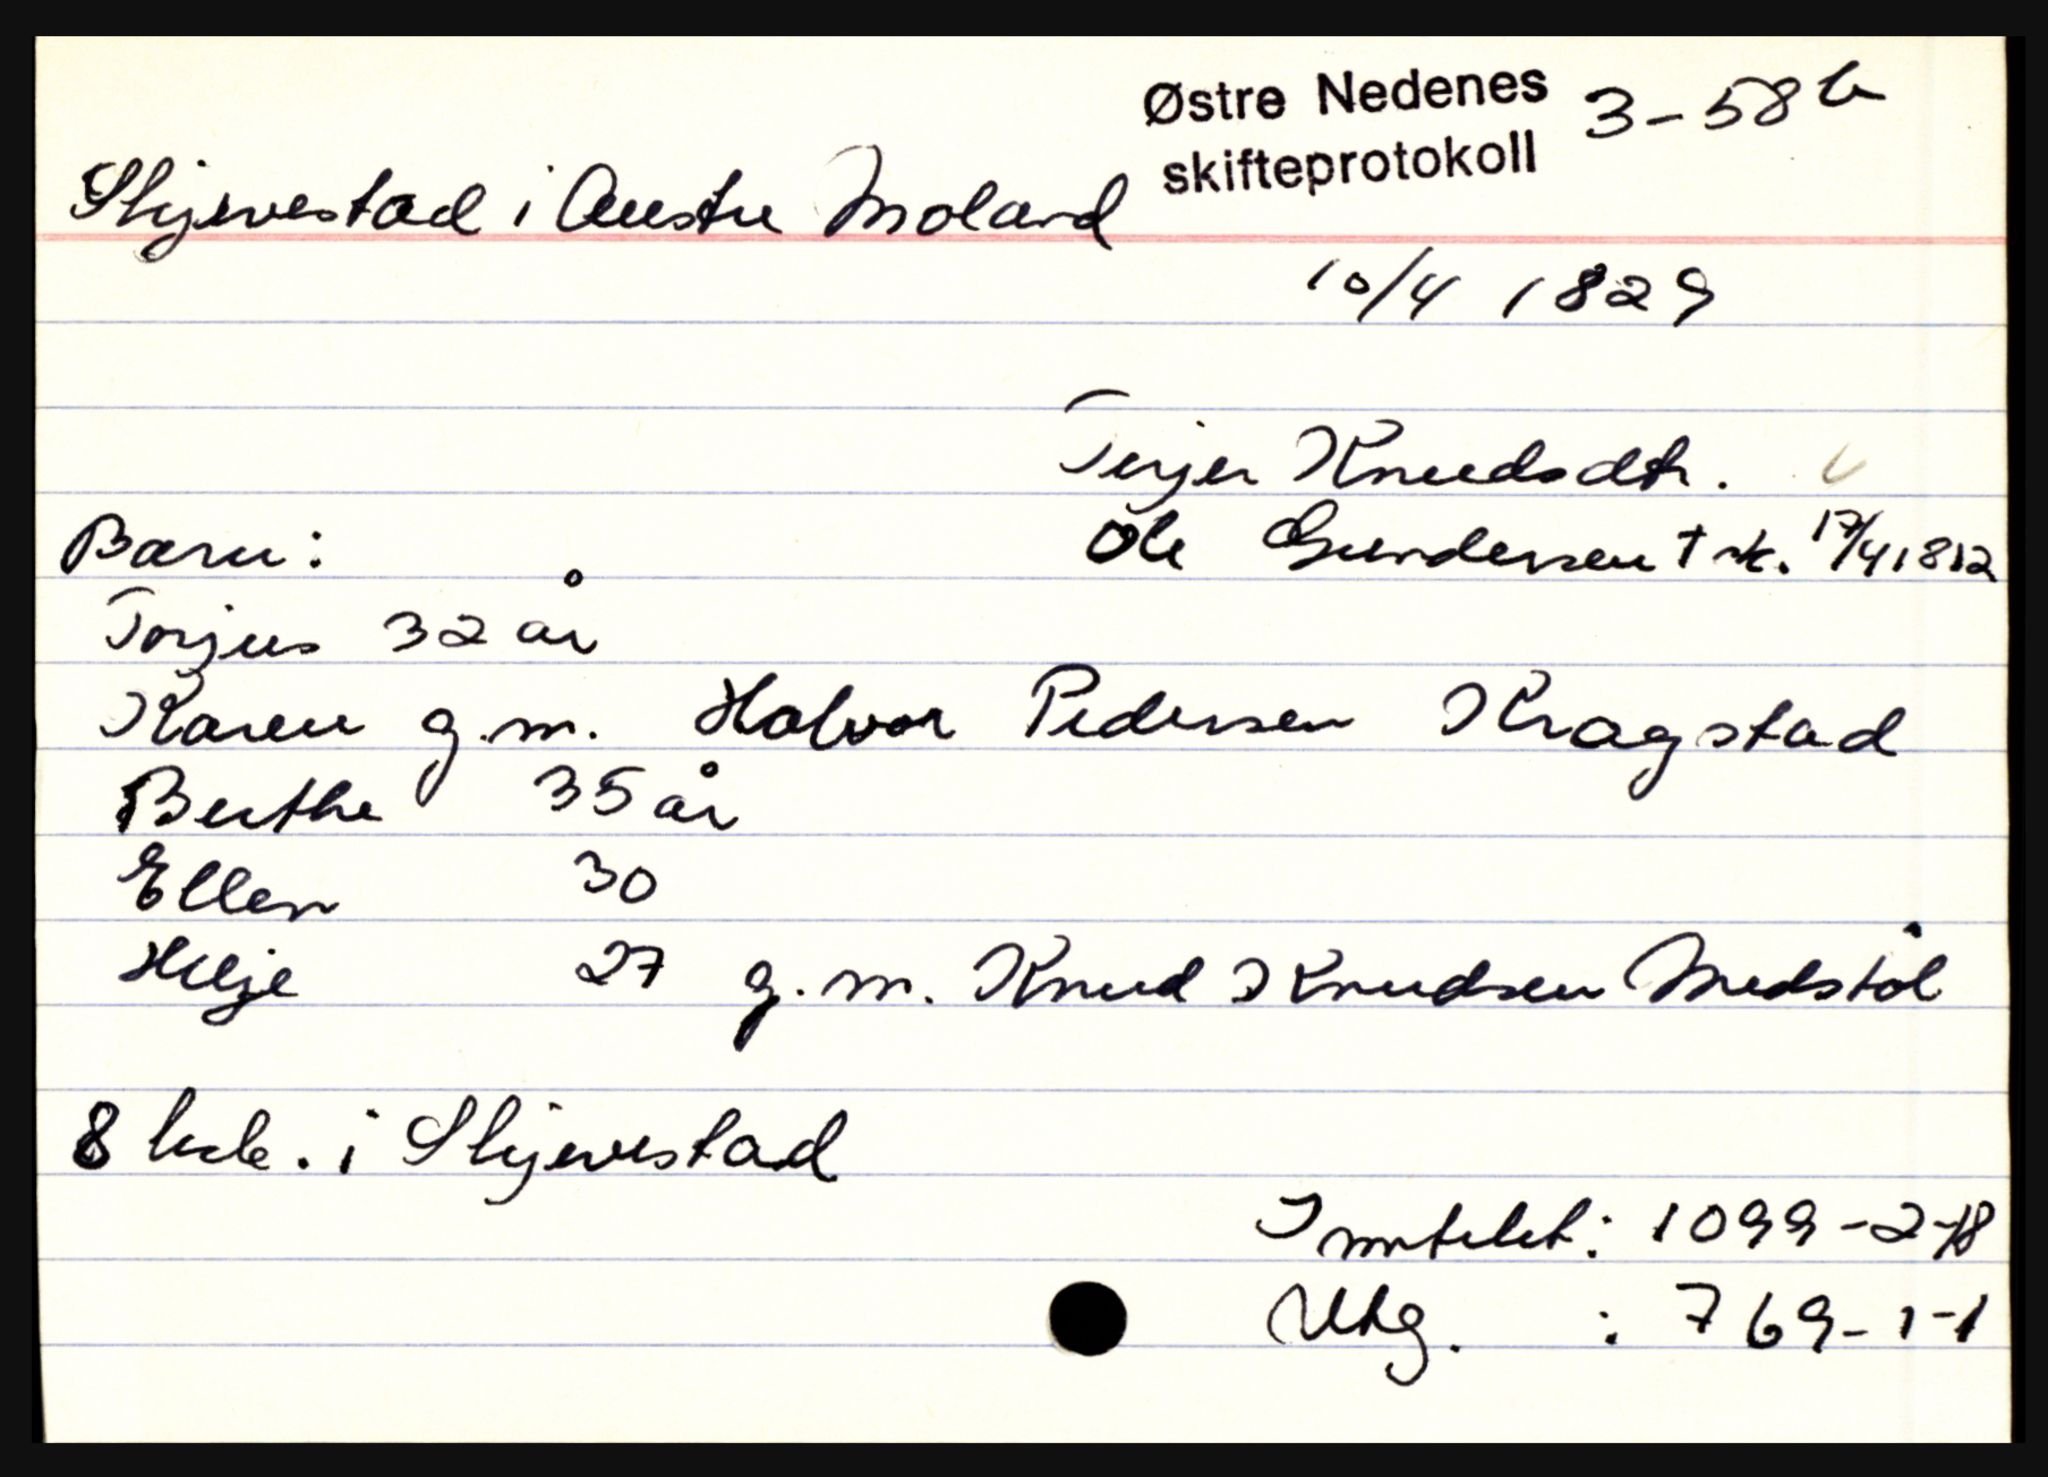 Østre Nedenes 3-58b
skifteprotokoll
Skjevestad i Austre Moland
10/4 1829
Terjer Knudsdtr.
Barn: Ole Gundersen † sk. 17/4 1812
Torjus 32 år
Karen g.m. Halvor Pedersen Kragstad
Berthe 35 år
Ellen 30
Helje 27 g.m. Knud Knudsen Medstøl
8 i Skjevestad
Inntekt: 1099-2-18
Utg. : 769-1-1